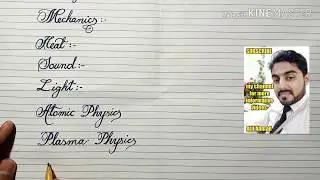 Mechanics:-
Heat:-
Sound:-
Light:-
Atomic Physics
Plasma Physics
KINEMASTER
SUBSCRIBE
my channel
for more
information